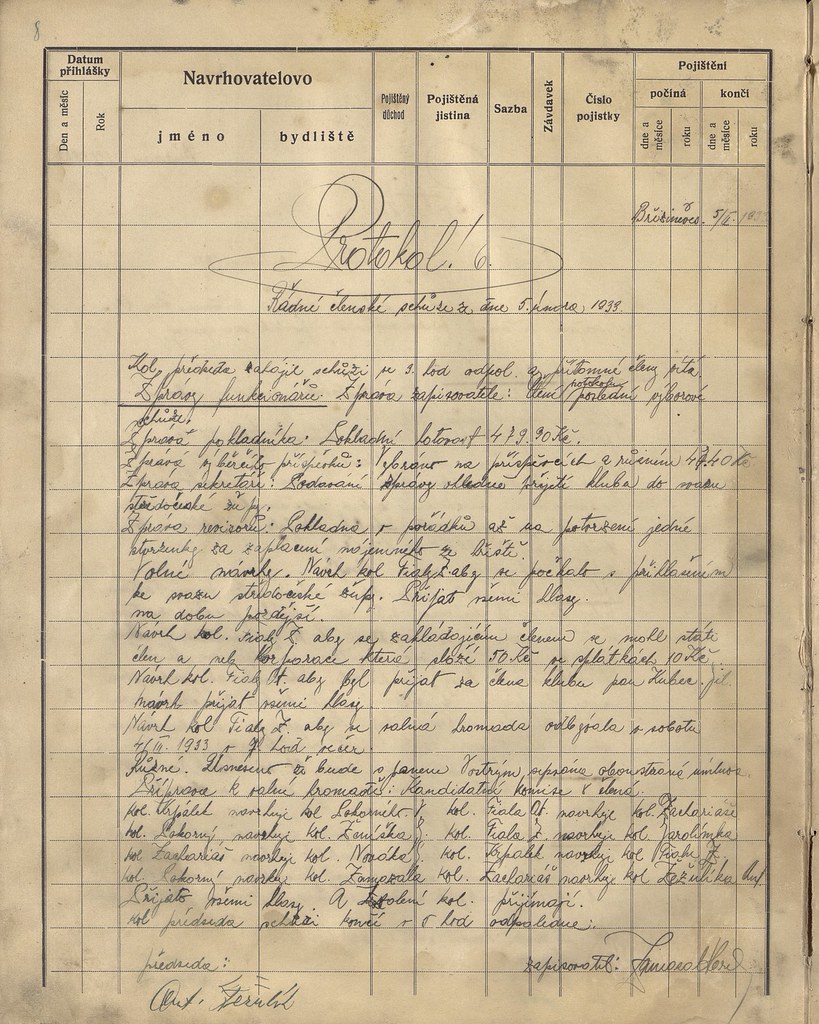 8
Datum přihlášky
Navrhovatelovo
Pojištěný důchod
Pojištěná jistina
Sazba
Závdavek
Číslo pojistky
Pojištění
počíná
končí
Den a měsíc
Rok
jméno
bydliště
dne a měsíce
roku
dne a měsíce
roku
Břišiměves. 5/II. 1933
Protokol! 6.
Řádné členské schůze ze dne 5. února 1933.
Kol. předseda zahájil schůzi ve 3. hod odpol. a přítomné členy vítá.
Zprávy funkcionářů. Zpráva zapisovatele: Čtení protokolu poslední výborové
schůze.
Zpráva pokladníka: Pokladní hotovost 479.90 Kč.
Zpráva výběrčího příspěvků: Vybráno na příspěvcích a různém Kč
Zpráva sekretáře: Podavaní zprávy ohledně přijetí klubu do svazu
středočeské župy.
Zpráva revisorů: Pokladna v pořádku až na potvrzení jedné
stvrzenky za zaplacení nájemného ze hřiště.
Volné návrhy. Návrh kol Fialy Z. aby se počkalo s přihlášením
ke svazu středočeské župy. Přijato všemi hlasy.
na dobu pozdější.
Návrh kol. Fialy Z. aby se zakládajícím členem se mohl státi
člen a neb korporace která složí 50 Kč ve splátkách 10 Kč.
Návrh kol. Fialy At. aby byl přijat za člena klubu pan Kubec
návrh přijat všemi hlasy.
Návrh kol Fialy Z. aby se valná hromada odbyvala v sobotu
4/III. 1933 v 7 hod večer.
Různé. Usneseno že bude s panem Vostrým sepsána oboustraná umluva
Příprava k valní hromadě: Kandidátní komise 8 členů.
kol. Krpálek navrhuje kol Pokorného V. kol. Fiala At. navrhuje kol. Zachariáše
kol. Pokorný navrhuje kol. Ženíška J. kol. Fiala Z. navrhuje kol. Jarolímka
kol Zachariáš navrhuje kol. Nováka J. kol. Krpálek navrhuje kol Fialu Z.
kol. Pokorný navrhuje kol. Zamazala kol. Zachariáš navrhuje kol Řežulíka Ant
Přijato všemi hlasy. A zvolení kol. přijímají.
kol předseda schůzi končí v 5 hod odpoledne.
předseda:
zapisovatel:
Ant.